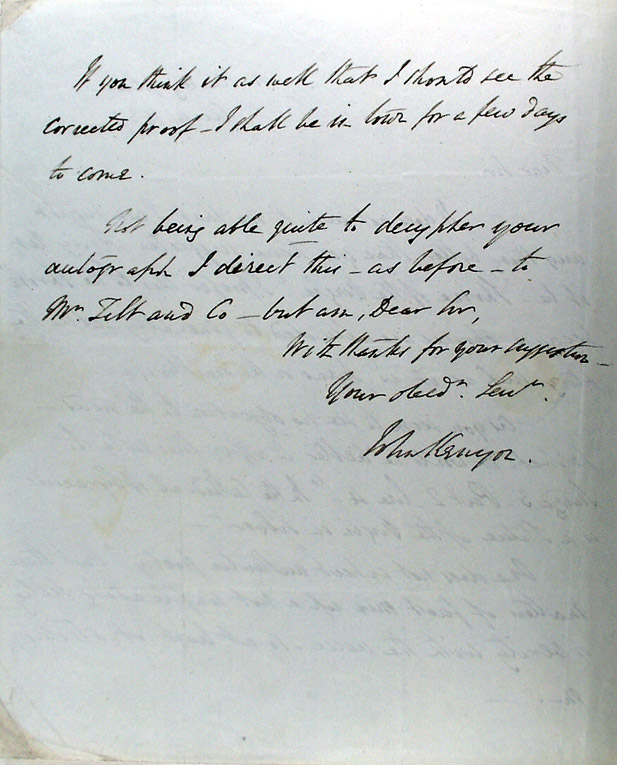 If you think it as well that I should see the
corrected proof – I shall be in town for a few days
to come.
Not being able quite to decypher your
autograph I direct this – as before – to
Mr. Tilt and Co – but am, Dear Sir,
With thanks for your suggestion –
Your obedt. Servt.
John Kenyon.